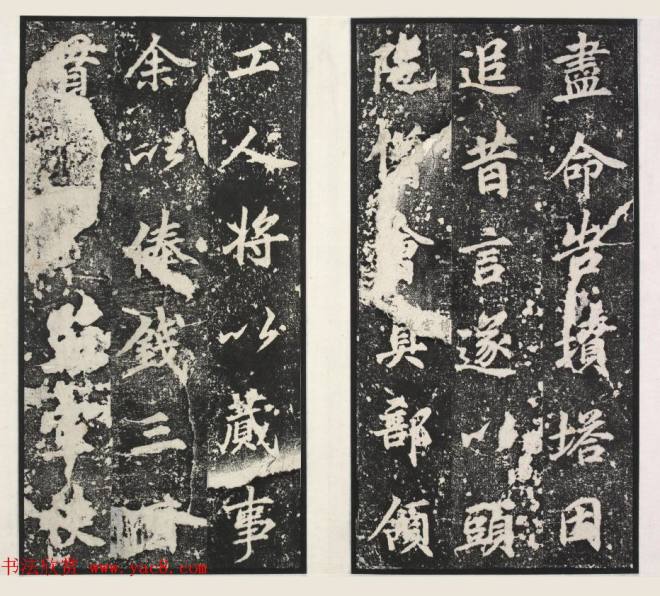 盡命告墳塔因
追昔言遂以頭
陁僧會真部領
工人將以蕆事
余以俸錢三百
貫
书法欣赏 www.yac8.com